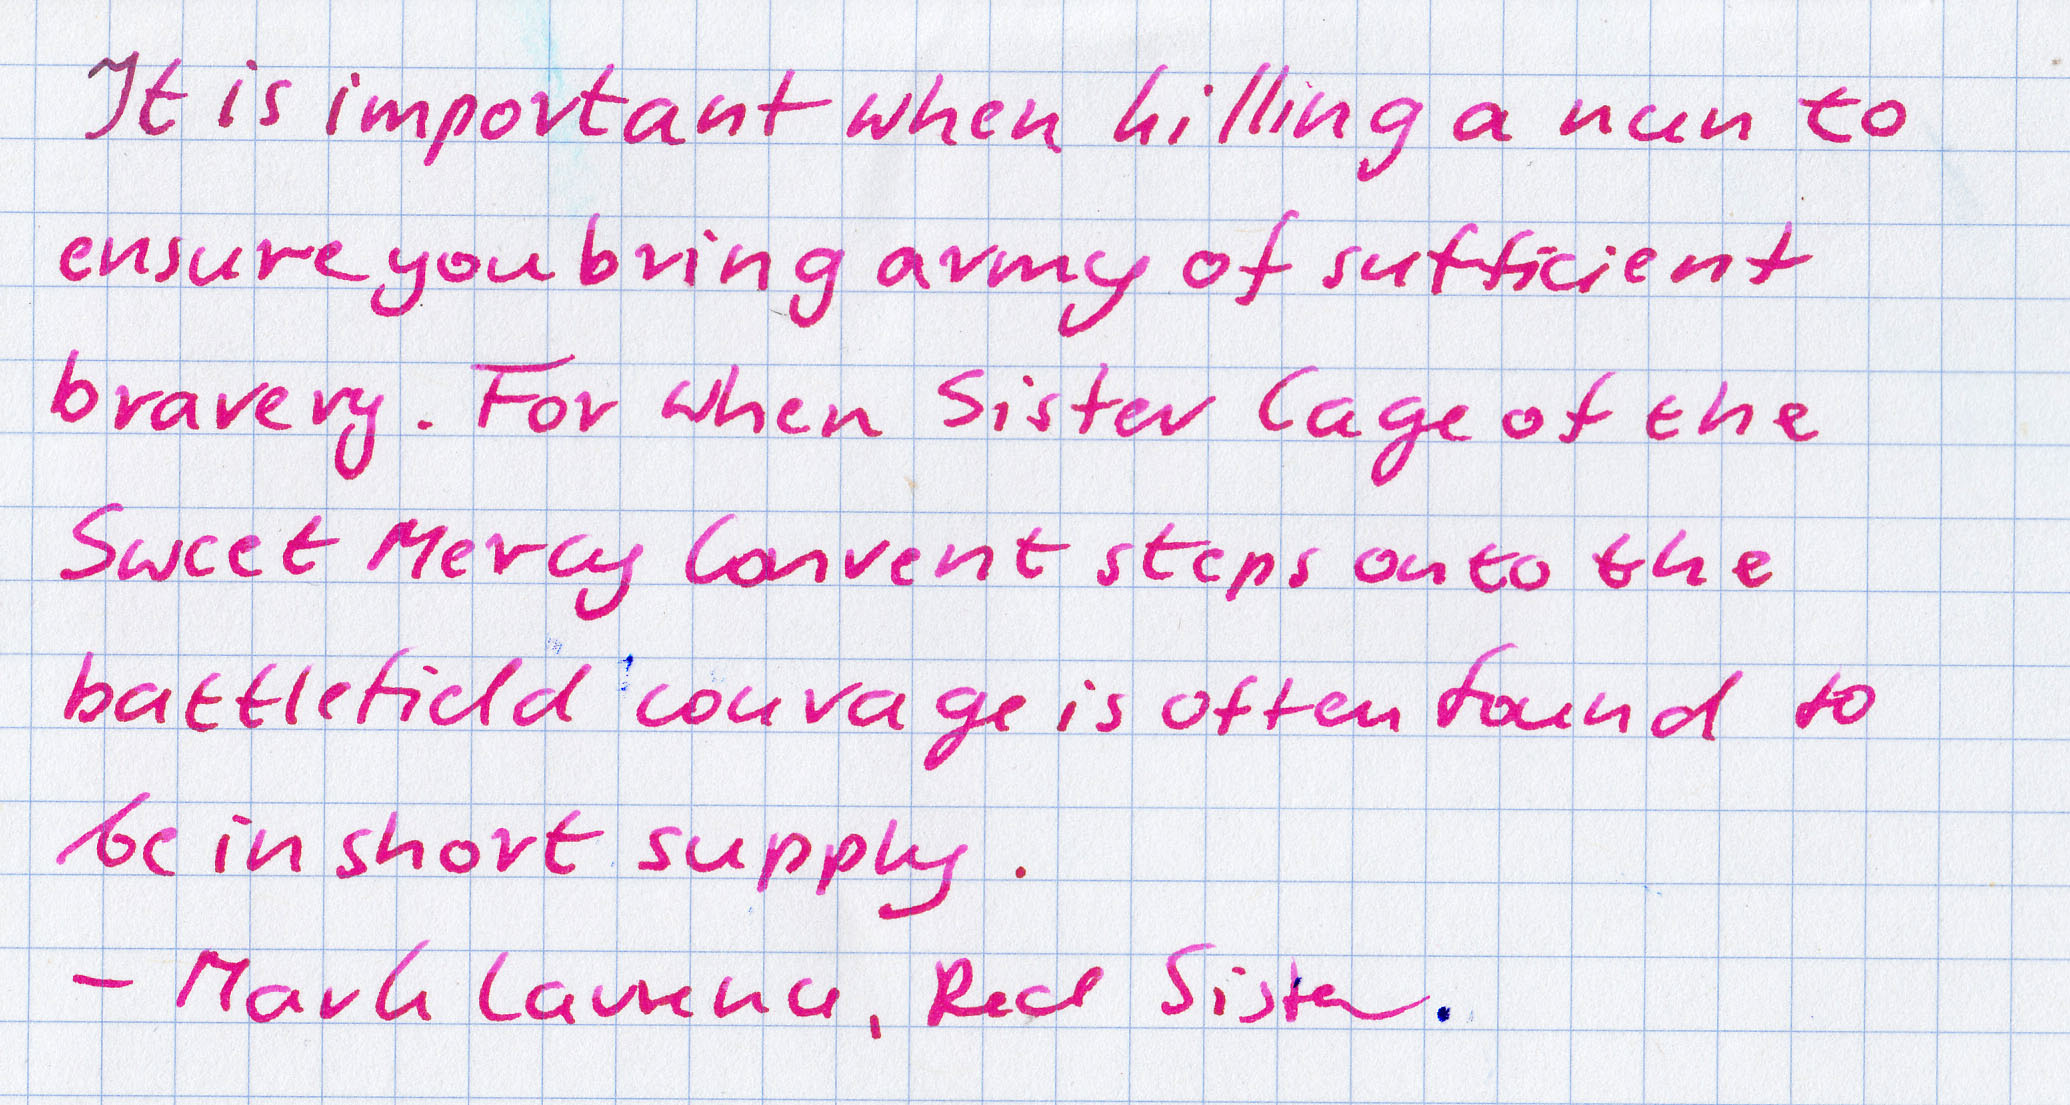 It is important when killing a nun to
ensure you bring army of sufficient
bravery. For when Sister Cage of the
Sweet Mercy Convent steps onto the
battlefield courage is often found to
be in short supply.
- Mark Lawrence, Red Sister.